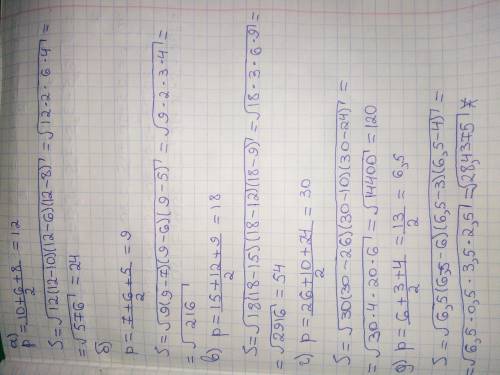 а)
p = 10+6+8/2 = 12
S = √12(12-10)(12-6)(12-8) = √12·2·6·4 =
= √576 = 24
б)
p = 7+6+5/2 = 9
S = √9(9-7)(9-6)(9-5) = √9·2·3·4 =
= √216
в)
p = 15+12+9/2 = 18
S = √18(18-15)(18-12)(18-9) = √18·3·6·9 =
= √2916 = 54
г)
p = 26+10+24/2 = 30
S = √30(30-26)(30-10)(30-24) =
= √30·4·20·6 = √14400 = 120
д) p = 6+3+4/2 = 13/2 = 6,5
S = √6,5(6,5-6)(6,5-3)(6,5-4) =
= √6,5·0,5·3,5·2,5 = √28,4375